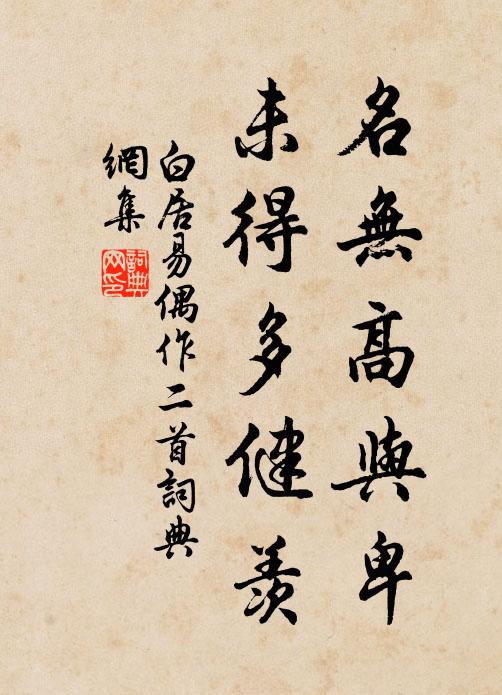 名無高與卑
未得多健羨
白居易偶作二首詞典
網集
詞典
网印